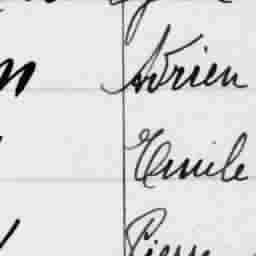 Adrien
Emile
Pierre